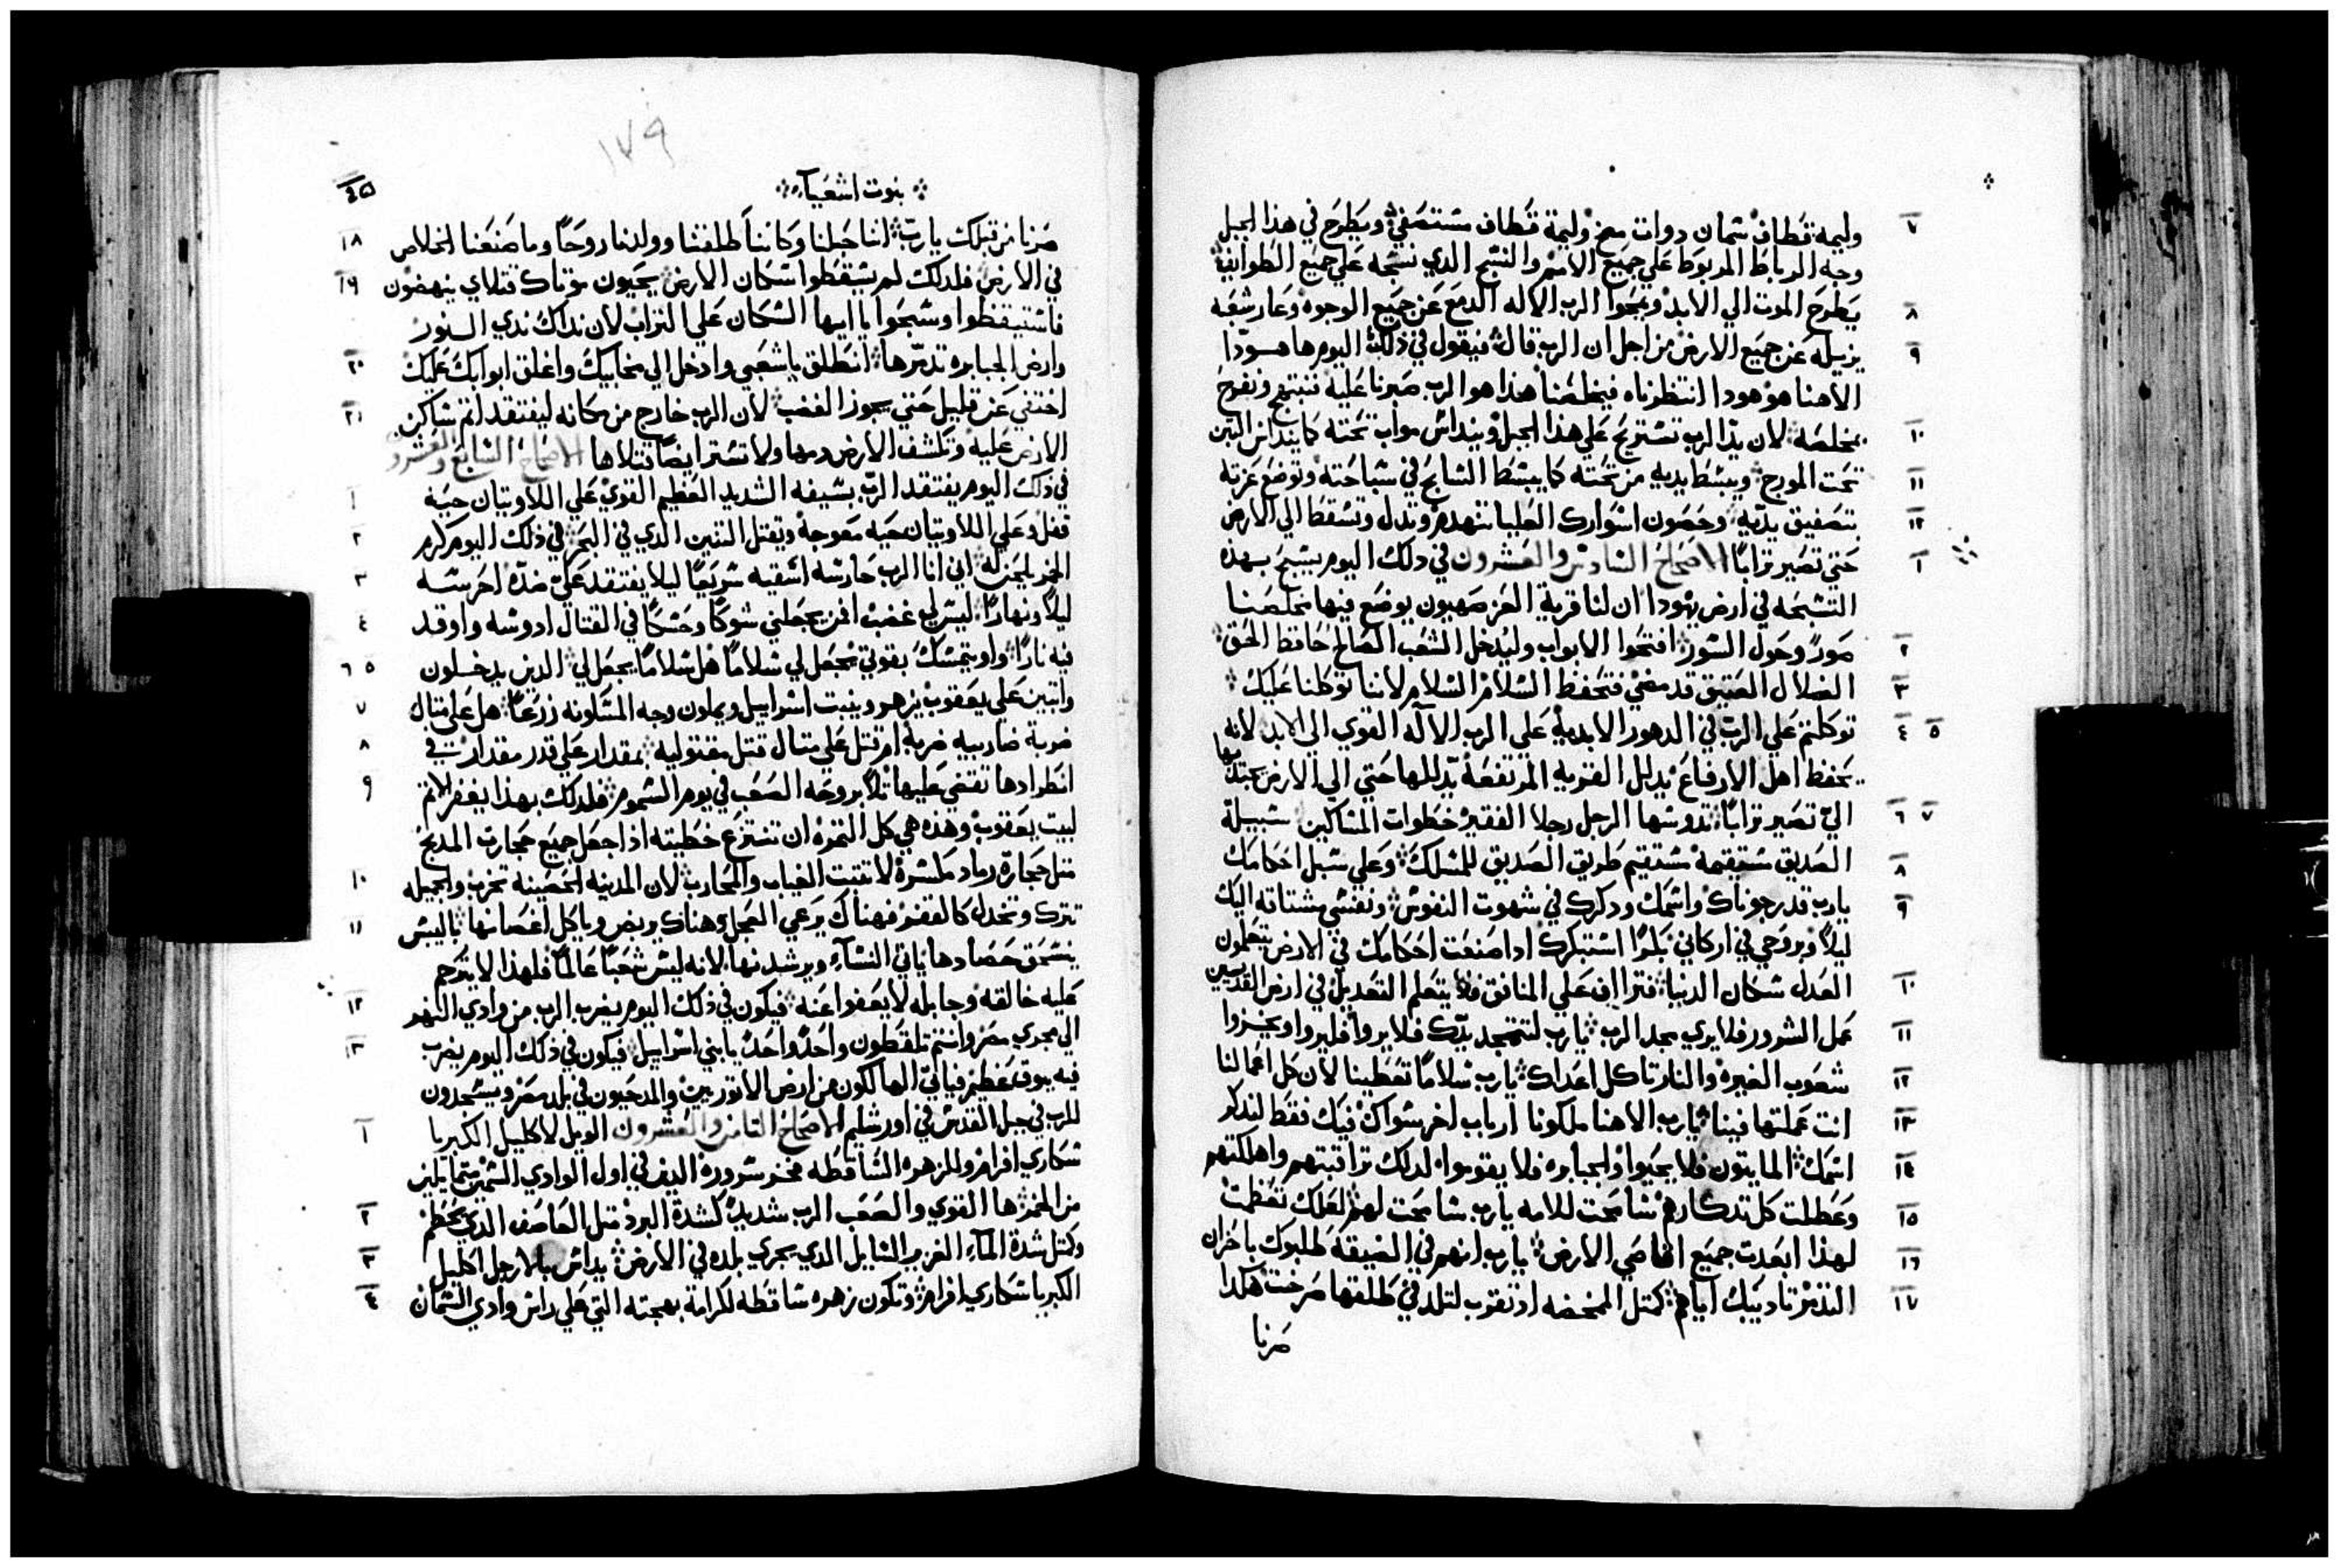 ٧ وليمة قطاف سمان دوات مخ وليمة قطاف مستصفي ويطرح في هذا الجبل
وجه الرباط المربوط علي جميع الامم والنسج الدي نسجه علي جميع الطوايف
٨ يطرح الموت الي الابد ويمحوا الرب الاله الدمع عن جميع الوجوه وعار شعبه
٩ يزيله عن جميع الارض من اجل ان الرب قال فيقول في ذلك اليوم ها هودا
الاهنا هو هودا انتظرناه فيخلصنا هذا هو الرب صبرنا عليه نبتهج ونفرح
١٠ بمخلصه لان يد الرب تستريح علي هذا الجبل وينداس مواب تحته كما ينداس التبن
١١ تحت المورج ويبسط يديه من تحته كما يبسط السابح في سباحته وتوضع عزته
١٢ بتصفيق يديه وحصون اسوارك العليا تنهدم وتدل وتسقط الي الارض
١ حتي تصير ترابا الاصحاح السادس والعشرون في دلك اليوم يسبح بهذه
التسبحه في ارض يهودا ان لنا قرية العز صهيون يوضع فيها مخلصنا
٢ صور وحول السور افتحوا الابواب وليدخل الشعب الصالح حافظ الحق
٣ الضلال العتيق قد مضي فتحفظ السلام السلام لاننا توكلنا عليك
٤ ٥ توكلتم علي الرب في الدهور الابدية علي الرب الاله القوي الي الابد لانه
يخفظ اهل الارفاع يدلل القرية المرتفعة يدللها حتي الي الارض يجتدبها
٦ ٧ الي تصير ترابا تدوسها الرجل رجلا الفقير خطوات المساكين سبيلة
٨ الصديق مستقيمة مستقيم طريق الصديق للمسلك وعلي سبل احكامك
٩ يارب قد رجوناك واسمك ودكرك في شهوت النفوس ونفسي مشتاقه اليك
ليلا وبروحي في اركاني بكرا استبكرك ادا صنعت احكامك في الارض يتعلمون
١٠ العدل سكان الدنيا فتراف علي المنافق فلا يتعلم التعديل في ارض القديسين
١١ عمل الشرور فلا يري مجد الرب يارب لتتمجد يدك فلا يروا فليروا ويخزوا
١٢ شعوب الغيرة والنار تاكل اعداك يارب سلاما تعطينا لان كل اعمالنا
١٣ انت عملتها فينا يارب الاهنا ملكونا ارباب اخر سواك فيك فقط لندكر
١٤ اسمك المايتون فلا يحيوا والجبابره فلا يقوموا لدلك تراقبتهم واهلكتهم
١٥ وعطلت كل تدكارهم سامحت للامه يارب سامحت لهم لعلك تعظمت
١٦ لهذا ابعدت جميع اقاصي الارض يارب انهم في الضيقة طلبوك باحزان
١٧ التدمر تاديبك اياهم كمتل الممخضه اد تقرب لتلد في طلقها صرخت هكدا
صرنا
١٧٩
نبوت اشعيا
١٨ صرنا من قبلك يارب اننا حبلنا وكاننا طلقنا وولدنا روحا وما صنعنا الخلاص
١٩ في الارض فلدلك لم يسقطوا سكان الارض يحيون موتاك قتلاي ينهضون
فاستيقظوا وسبحوا يا ايها السكان علي التراب لان نداك ندي النور
٢٠ وارض الجبابره تدمرها انطلق ياشعبي وادخل الي مخابيك واغلق ابوابك عليك
٢١ اختفي عن قليل حتي يجوز الغضب لان الرب خارج من مكانه ليفتقد اتم ساكن
الارض عليه وتكشف الارض دمها ولا تستر ايضا قتلاها الاصحاح السابع والعشرو
١ في ذلك اليوم يفتقد الرب بسيفه الشديد العظيم القوي علي اللاويتان حية
٢ قفل وعلي اللاويتان حيه معوجة ويقتل التنين الدي في البحر في ذلك اليوم كرم
٣ الخمر يلجن له اني انا الرب حارسه اسقيه سريعا ليلا يفتقد علي ضده احرسه
٤ ليلا ونهارا ليس لي غضب افمن يجعلني شوكا وحسكا في القتال ادوسه واوقد
٥ ٦ فيه نارا واو يتمسك بقوتي يجعل لي سلاما هل سلاما يجعل لي الدين يدخلون
٧ واتبين علي يعقوب يزهر وينبت اسراييل ويملون وجه المسكونه زرعا هل علي متال
٨ ضربة ضاربيه ضربه ام قتل علي متال قتل مقتوليه بمقدار علي قدر مقدار
٩ انطرادها تقضي عليها تلا بروحه الصعب في يوم السموم فلدلك بهذا يغفر الاتم
لبيت يعقوب وهذه هي كل التمره ان تنتزع خطيته ادا جعل جميع حجارت المدبح
١٠ متل حجارة رماد مكسرة لا تتبت الغياب والمحارب لان المدينه الحصينه تخرب والجميله
١١ تترك وتخدل كالقفر فهناك يرعي العجل وهناك يربض وياكل اغصانها باليبس
ينسحق حصادها ياتي النساء ويرشدنها لانه ليس شعبا عالما فلهذا لا يترحم
١٢ عليه خالقه وجابله لا يعفوا عنه فيكون في ذلك اليوم يضرب الرب من وادي النهر
١٣ الي مجري مصر وانتم تلقطون واحد واحد يابني اسراييل فيكون في ذلك اليوم يضرب
فيه بوق عظيم فياتي الهالكون من ارض الاتوريين والمدحيون في بلد مصر ويسجدون
١ للرب في جبل القدس في اورشليم الاصحاح التامن والعشرون الويل لاكليل الكبريا
سكاري افرام وللزهره الساقطه فخر سروره الدين في اول الوادي السمين
٢ من الخمر ها القوي والصعب الرب شديد كشدة البرد متل العاصف الدي يحطم
٣ وكتل شدة الماء الغزير السايل الدي يجري بلده في الارض يداس بالارجل اكليل
٤ الكبريا سكاري افرام وتكون زهره ساقطه لكرامة بهجته التي علي راس وادي السمان